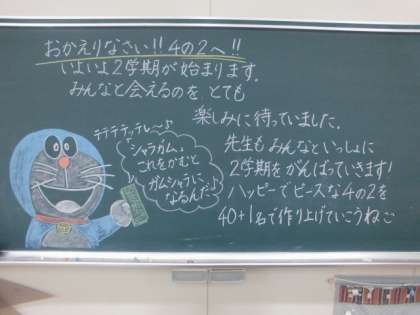 おかえりなさい!! 4の2へ!!
いよいよ2学期が始まります。
みんなと会えるのを、とても
楽しみに待っていました。
先生もみんなといっしょに
2学期をがんばっていきます!
ハッピーでピースな4の2を
40+1名で作り上げていこうねこ
テテテテッテレ〜♪
シャラガム。
これをかむと
ガムシャラに
なるんだ♪